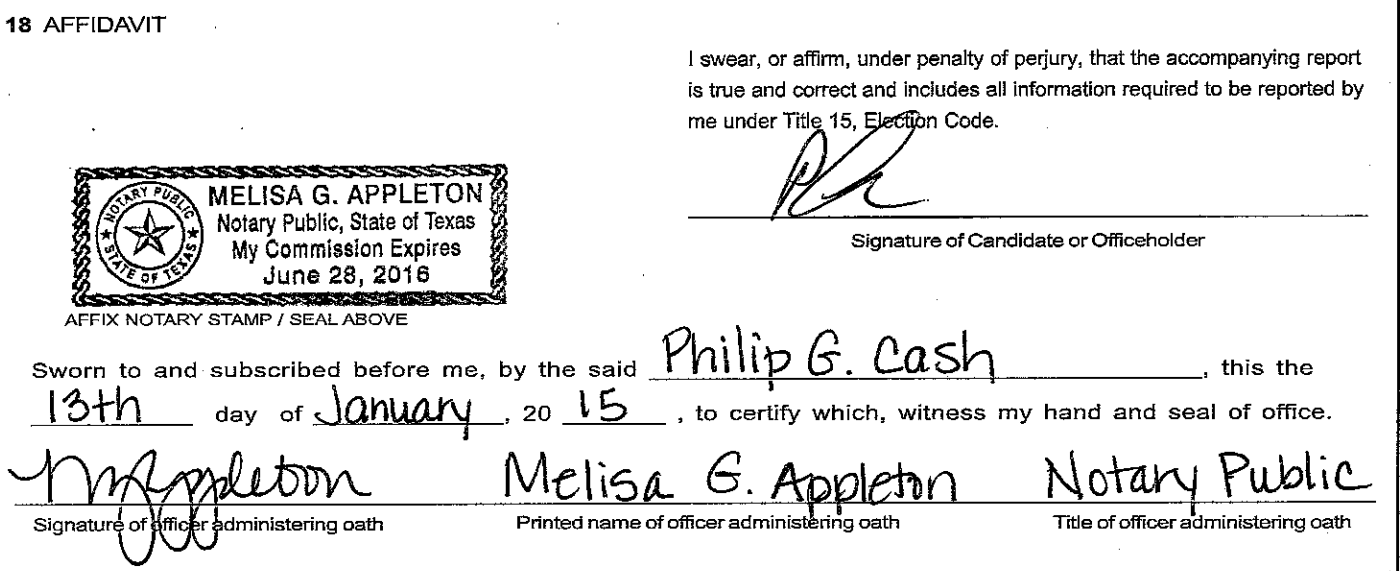 18 AFFIDAVIT
I swear, or affirm, under penalty of perjury, that the accompanying report
is true and correct and includes all information required to be reported by
me under Title 15, Election Code.
Signature of Candidate or Officeholder
NOTARY PUBLIC
STATE OF TEXAS
MELISA G. APPLETON
Notary Public, State of Texas
My Commission Expires
June 28, 2016
AFFIX NOTARY STAMP / SEAL ABOVE
Sworn to and subscribed before me, by the said Philip G. Cash, this the
13th day of January, 20 15, to certify which, witness my hand and seal of office.
MGAppleton Melisa G. Appleton Notary Public
Signature of officer administering oath Printed name of officer administering oath Title of officer administering oath